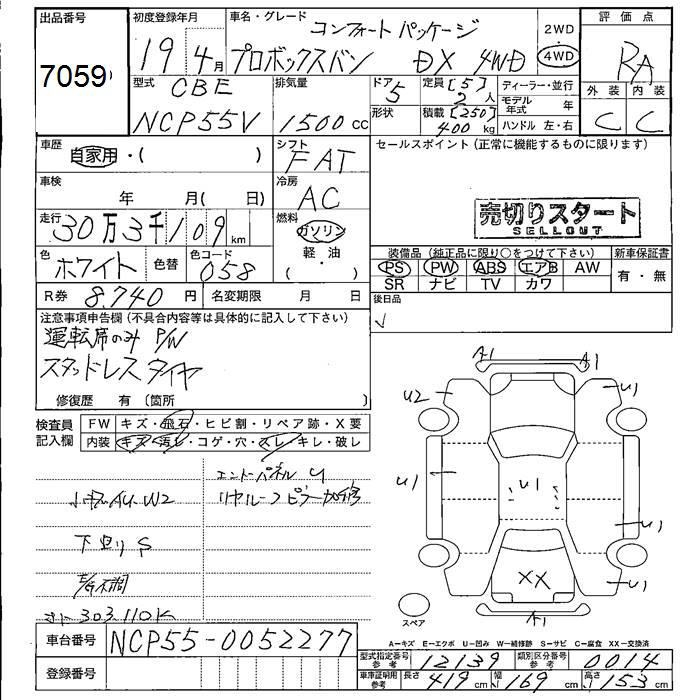 出品番号
7059
初度登録年月
19年4月
車名・グレード
コンフォートパッケージ
プロボックスバン DX 4WD
2WD
4WD
評価点
RA
外装 内装
C C
型式
CBE
NCP55V
排気量
1500 cc
ドア
5
形状
定員 [5]
2人
積載 [250]
400 kg
ディーラー・並行
モデル年式 年
ハンドル 左・右
車歴
自家用・( )
シフト
FAT
セールスポイント (正常に機能するものに限ります)
車検
年 月( 日)
冷房
AC
売切りスタート
SELLOUT
走行
30万3千109km
燃料
ガソリン
軽・油
( )
色
ホワイト
色替
色コード
058
装備品 (純正品に限り○をつけて下さい)
PS PW ABS エアB AW
SR ナビ TV カワ
新車保証書
有・無
R券 8,740円
名変期限 月 日
後日品
注意事項申告欄 (不具合内容等は具体的に記入して下さい)
運転席のみ P/W
スタッドレスタイヤ
修復歴 有 〔箇所 〕
検査員記入欄
FW キズ・飛石・ヒビ割・リペア跡・X要
内装 キズ・汚レ・コゲ・穴・スレ・キレ・破レ
エンドーパネル U
小キズ AU W2
下回り S
303,110K
A1 A1
U2 U1
U1 U1
U1
XX U1
A1
スペア
A-キズ E-エクボ U-凹み W-補修跡 S-サビ C-腐食 XX-交換済
車台番号 NCP55-0052277
登録番号
型式指定番号 参考 12139
類別区分番号 参考 0014
車庫証明用 参考 長さ 419cm 幅 169cm 高さ 153cm